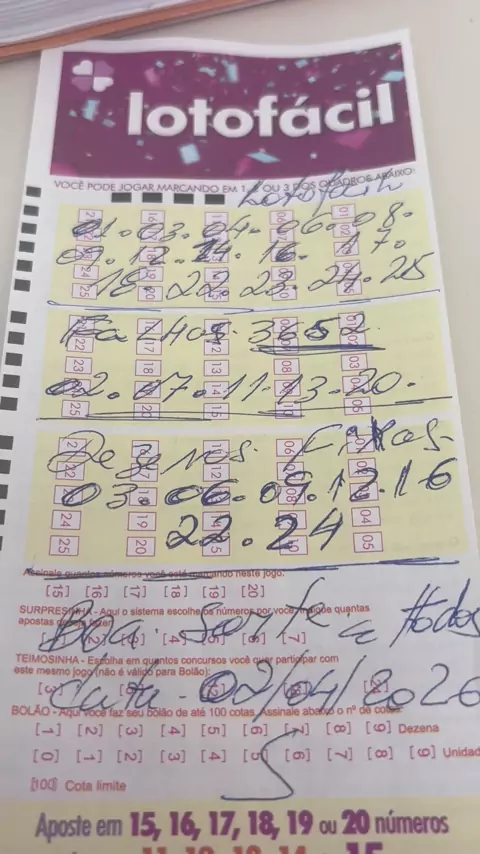 lotofácil
VOCÊ PODE JOGAR MARCANDO EM 1, 2 OU 3 DOS QUADROS ABAIXO:
Lotofacil
01.03.04.06.08.
09.12.14.16.17.
18.22.23.24.25
Falhas. 3652
02.07.11.13.20.
Dezenas. Fixas-
03.06.09.12.16
22.24
Assinale quantos números você está marcando neste jogo:
[15] [16] [17] [18] [19] [20]
SURPRESINHA - Aqui o sistema escolhe os números por você. Indique quantas
apostas deseja fazer:
Boa Sorte a todos
TEIMOSINHA - Escolha em quantos concursos você quer participar com
este mesmo jogo (não é válido para Bolão):
Data-02/04/2026
BOLÃO - Aqui você faz seu bolão de até 100 cotas. Assinale abaixo o nº de cotas:
[1] [2] [3] [4] [5] [6] [7] [8] [9] Dezena
[0] [1] [2] [3] [4] [5] [6] [7] [8] [9] Unidad
[100] Cota limite
Aposte em 15, 16, 17, 18, 19 ou 20 números